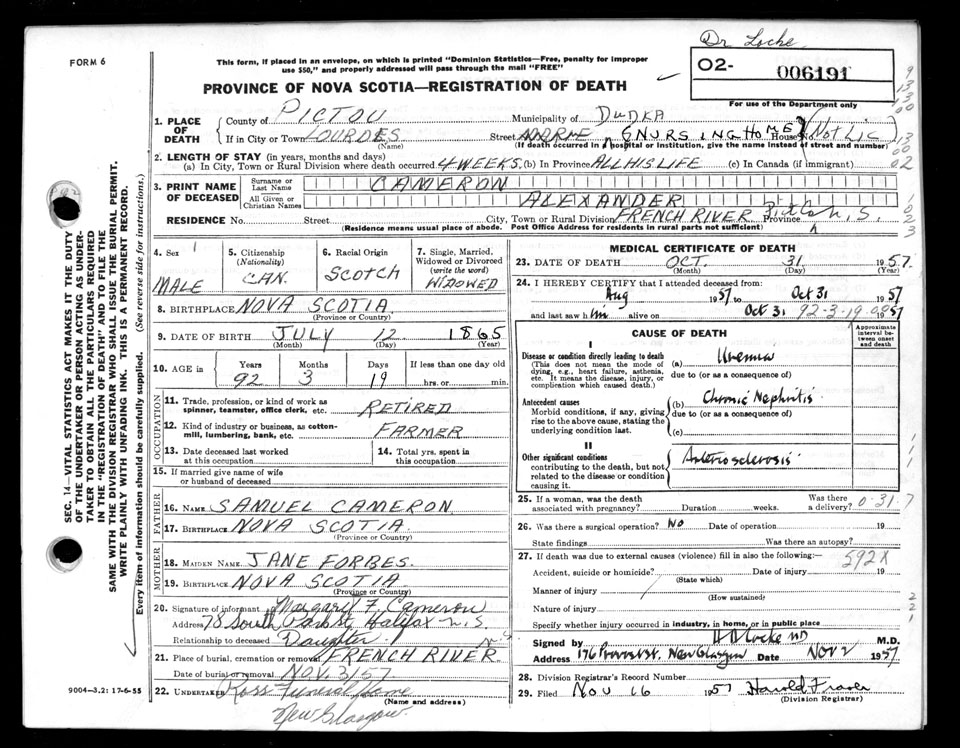 Dr Locke
FORM 6
This form, if placed in an envelope, on which is printed "Dominion Statistics—Free, penalty for improper
use $50," and properly addressed will pass through the mail "FREE"
02- 006191
For use of the Department only
PROVINCE OF NOVA SCOTIA—REGISTRATION OF DEATH
1. PLACE OF DEATH
County of PICTOU Municipality of
If in City or Town LOURDES Street NURSING HOME House No. (Not Lic)
(Name) (If death occurred in a hospital or Institution, give the name instead of street and number)
2. LENGTH OF STAY (in years, months and days)
(a) In City, Town or Rural Division where death occurred 4 WEEKS (b) In Province ALL HIS LIFE (c) In Canada (if immigrant)
3. PRINT NAME OF DECEASED
Surname or Last Name CAMERON
All Given or Christian Names ALEXANDER
RESIDENCE No. Street City, Town or Rural Division FRENCH RIVER Province N.S.
(Residence means usual place of abode. Post Office Address for residents in rural parts not sufficient)
4. Sex MALE
5. Citizenship (Nationality) CAN.
6. Racial Origin SCOTCH
7. Single, Married, Widowed or Divorced (write the word) WIDOWED
8. BIRTHPLACE NOVA SCOTIA
(Province or Country)
9. DATE OF BIRTH JULY 12 1865
(Month) (Day) (Year)
10. AGE IN Years 92 Months 3 Days 19 If less than one day old hrs. or min.
OCCUPATION
11. Trade, profession, or kind of work as spinner, teamster, office clerk, etc. RETIRED
12. Kind of industry or business, as cotton-mill, lumbering, bank, etc. FARMER
13. Date deceased last worked at this occupation
14. Total yrs. spent in this occupation
15. If married give name of wife or husband of deceased
FATHER
16. NAME SAMUEL CAMERON
17. BIRTHPLACE NOVA SCOTIA.
(Province or Country)
MOTHER
18. MAIDEN NAME JANE FORBES.
19. BIRTHPLACE NOVA SCOTIA
(Province or Country)
20. Signature of informant Margaret F. Cameron
Address 78 South Park St. Halifax N.S.
Relationship to deceased Daughter
21. Place of burial, cremation or removal FRENCH RIVER N.S.
Date of burial or removal NOV. 3/57
22. UNDERTAKER Ross Funeral Home
(Name and address)
New Glasgow.
9004-3.2: 17-6-55
SEC. 14—VITAL STATISTICS ACT MAKES IT THE DUTY
OF THE UNDERTAKER OR PERSON ACTING AS UNDER-
TAKER TO OBTAIN ALL THE PARTICULARS REQUIRED
IN THE "REGISTRATION OF DEATH" AND TO FILE THE
SAME WITH THE DIVISION REGISTRAR WHO SHALL ISSUE THE BURIAL PERMIT.
WRITE PLAINLY WITH UNFADING INK. THIS IS A PERMANENT RECORD.
Every item of information should be carefully supplied. (See reverse side for instructions.)
MEDICAL CERTIFICATE OF DEATH
23. DATE OF DEATH OCT. 31 1957.
(Month) (Day) (Year)
24. I HEREBY CERTIFY that I attended deceased from:
Aug 1957 to Oct 31 1957
and last saw him alive on Oct 31 1957
92-3-19
CAUSE OF DEATH
Approximate interval between onset and death
I
Disease or condition directly leading to death (a) Uremia
(This does not mean the mode of dying, e.g., heart failure, asthenia, etc. It means the disease, injury, or complication which caused death.)
due to (or as a consequence of)
Antecedent causes (b) Chronic Nephritis
Morbid conditions, if any, giving rise to the above cause, stating the underlying condition last.
due to (or as a consequence of)
(c)
II
Other significant conditions Arteriosclerosis
contributing to the death, but not related to the disease or condition causing it.
25. If a woman, was the death associated with pregnancy? Duration weeks. Was there a delivery?
0-31-7
26. Was there a surgical operation? No Date of operation 19
State findings Was there an autopsy?
27. If death was due to external causes (violence) fill in also the following:—
592X
Accident, suicide or homicide? Date of injury 19
(State which)
Manner of injury
(How sustained)
Nature of injury
Specify whether injury occurred in industry, in home, or in public place
Signed by Locke MD M.D.
Address 176 Provost St, New Glasgow Date Nov 2 1957
28. Division Registrar's Record Number
29. Filed Nov 16 1957 Harold Fraser
(Division Registrar)